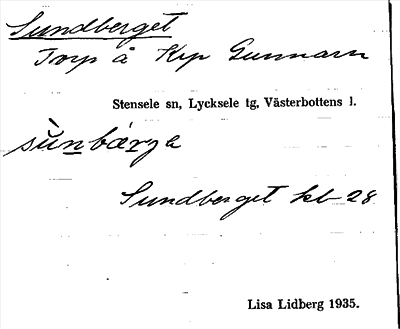 Sundberget
Torp å Krp Gunnarn
Stensele sn, Lycksele tg, Västerbottens l.
sùnbærga
Sundberget kb 28
Lisa Lidberg 1935.